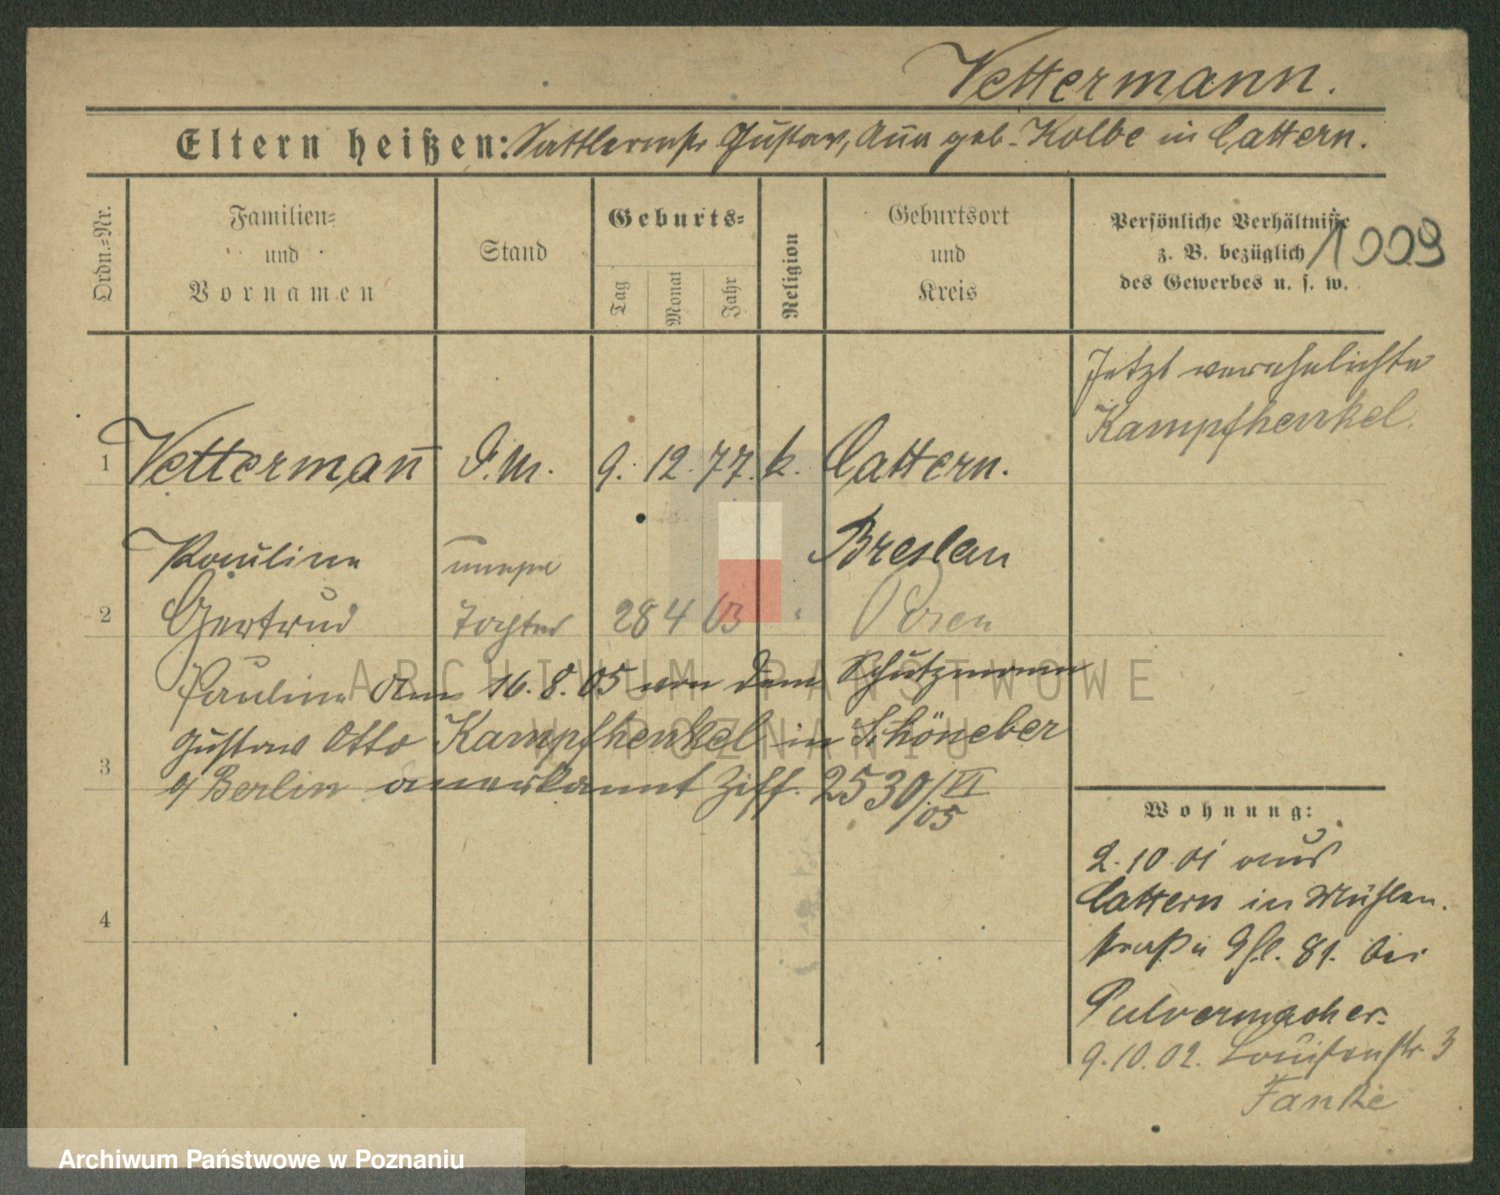 Vettermann.
Eltern heißen: Sattlermstr Gustav, Anna geb. Kolbe in Cattern.
Ordn.=Nr.
Familien=
und
Vornamen
Stand
Geburts=
Tag
Monat
Jahr
Religion
Geburtsort
und
Kreis
Persönliche Verhältnisse
z. B. bezüglich
des Gewerbes u. s. w.
1009
Jetzt verehelichte
Kampfhenkel.
1 Vetterman̄ 9. 12. 77. k. Cattern.
Pauline Breslau
2 Gertrud Tochter 28 4 03 Posen
Pauline am 16.8.05 von dem Schutzmann
Gustav Otto Kampfhenkel in Schöneber
3
b/ Berlin anerkannt Ziff. 2530/VI
/05
4
Wohnung:
2.10.01 aus
Cattern in Mühlen-
straße 81. bei
Pulvermacher.
9.10.02. Louisenstr. 3
Fanke
ARCHIWUM PAŃSTWOWE
W POZNANIU
Archiwum Państwowe w Poznaniu